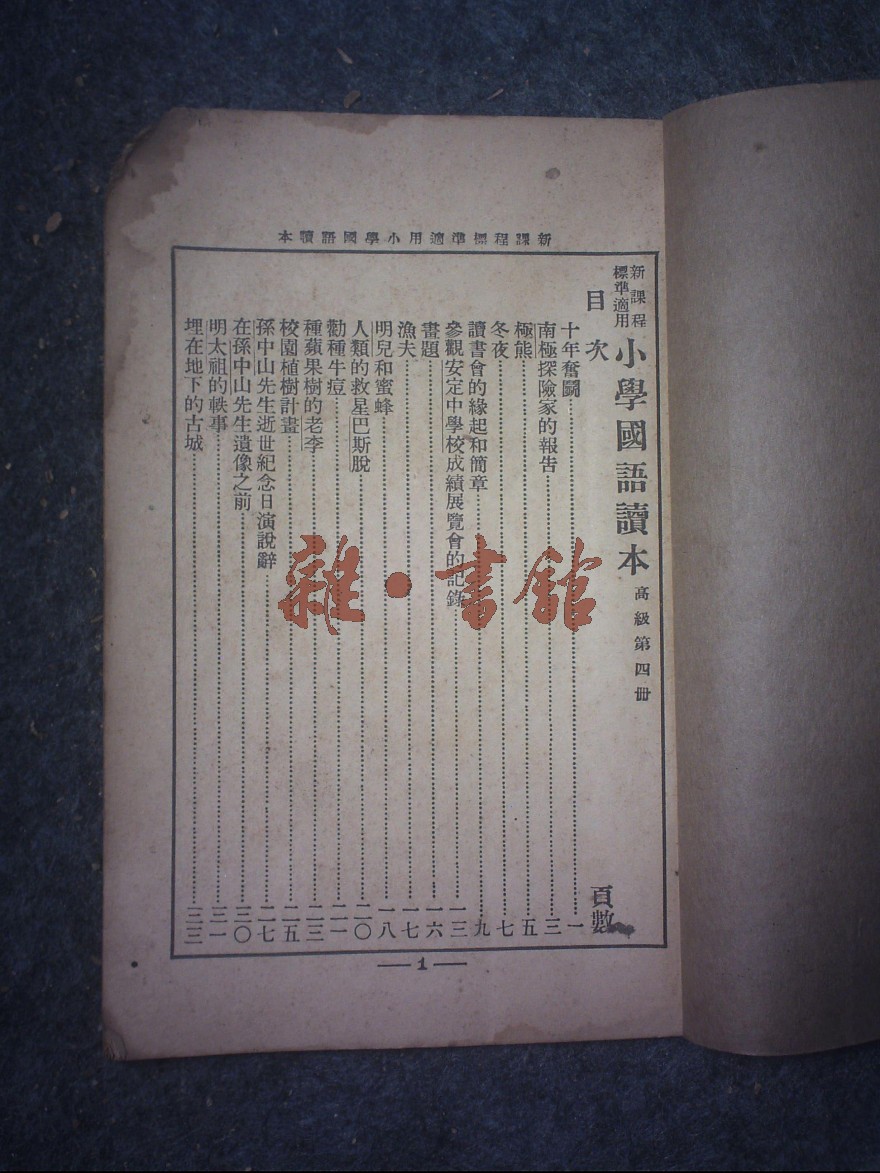 新課程標準適用小學國語讀本
新課程標準適用
小學國語讀本 高級第四冊
目次 頁數
十年奮鬭 一
南極探險家的報告 三
極熊 五
冬夜 七
讀書會的緣起和簡章 九
參觀安定中學校成績展覽會的記錄 一三
畫題 一六
漁夫 一七
明兒和蜜蜂 一八
人類的救星巴斯脫 二〇
勸種牛痘 二一
種蘋果樹的老李 二三
校園植樹計畫 二五
孫中山先生逝世紀念日演說辭 二七
在孫中山先生遺像之前 三〇
明太祖的軼事 三一
埋在地下的古城 三三
1
雜·書館